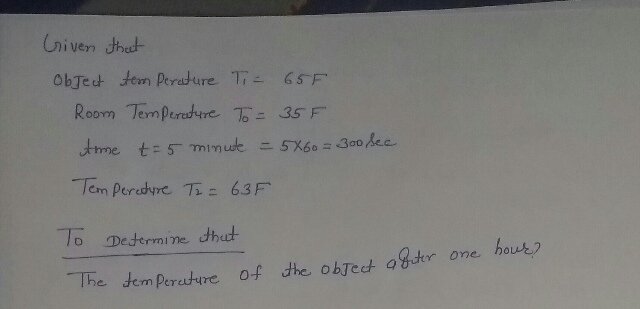 Given that
Object temperature T₁ = 65F
Room Temperature T₀ = 35 F
time t = 5 minute = 5X60 = 300 sec
Temperature T₂ = 63F
To Determine that
The temperature of the object after one hour?